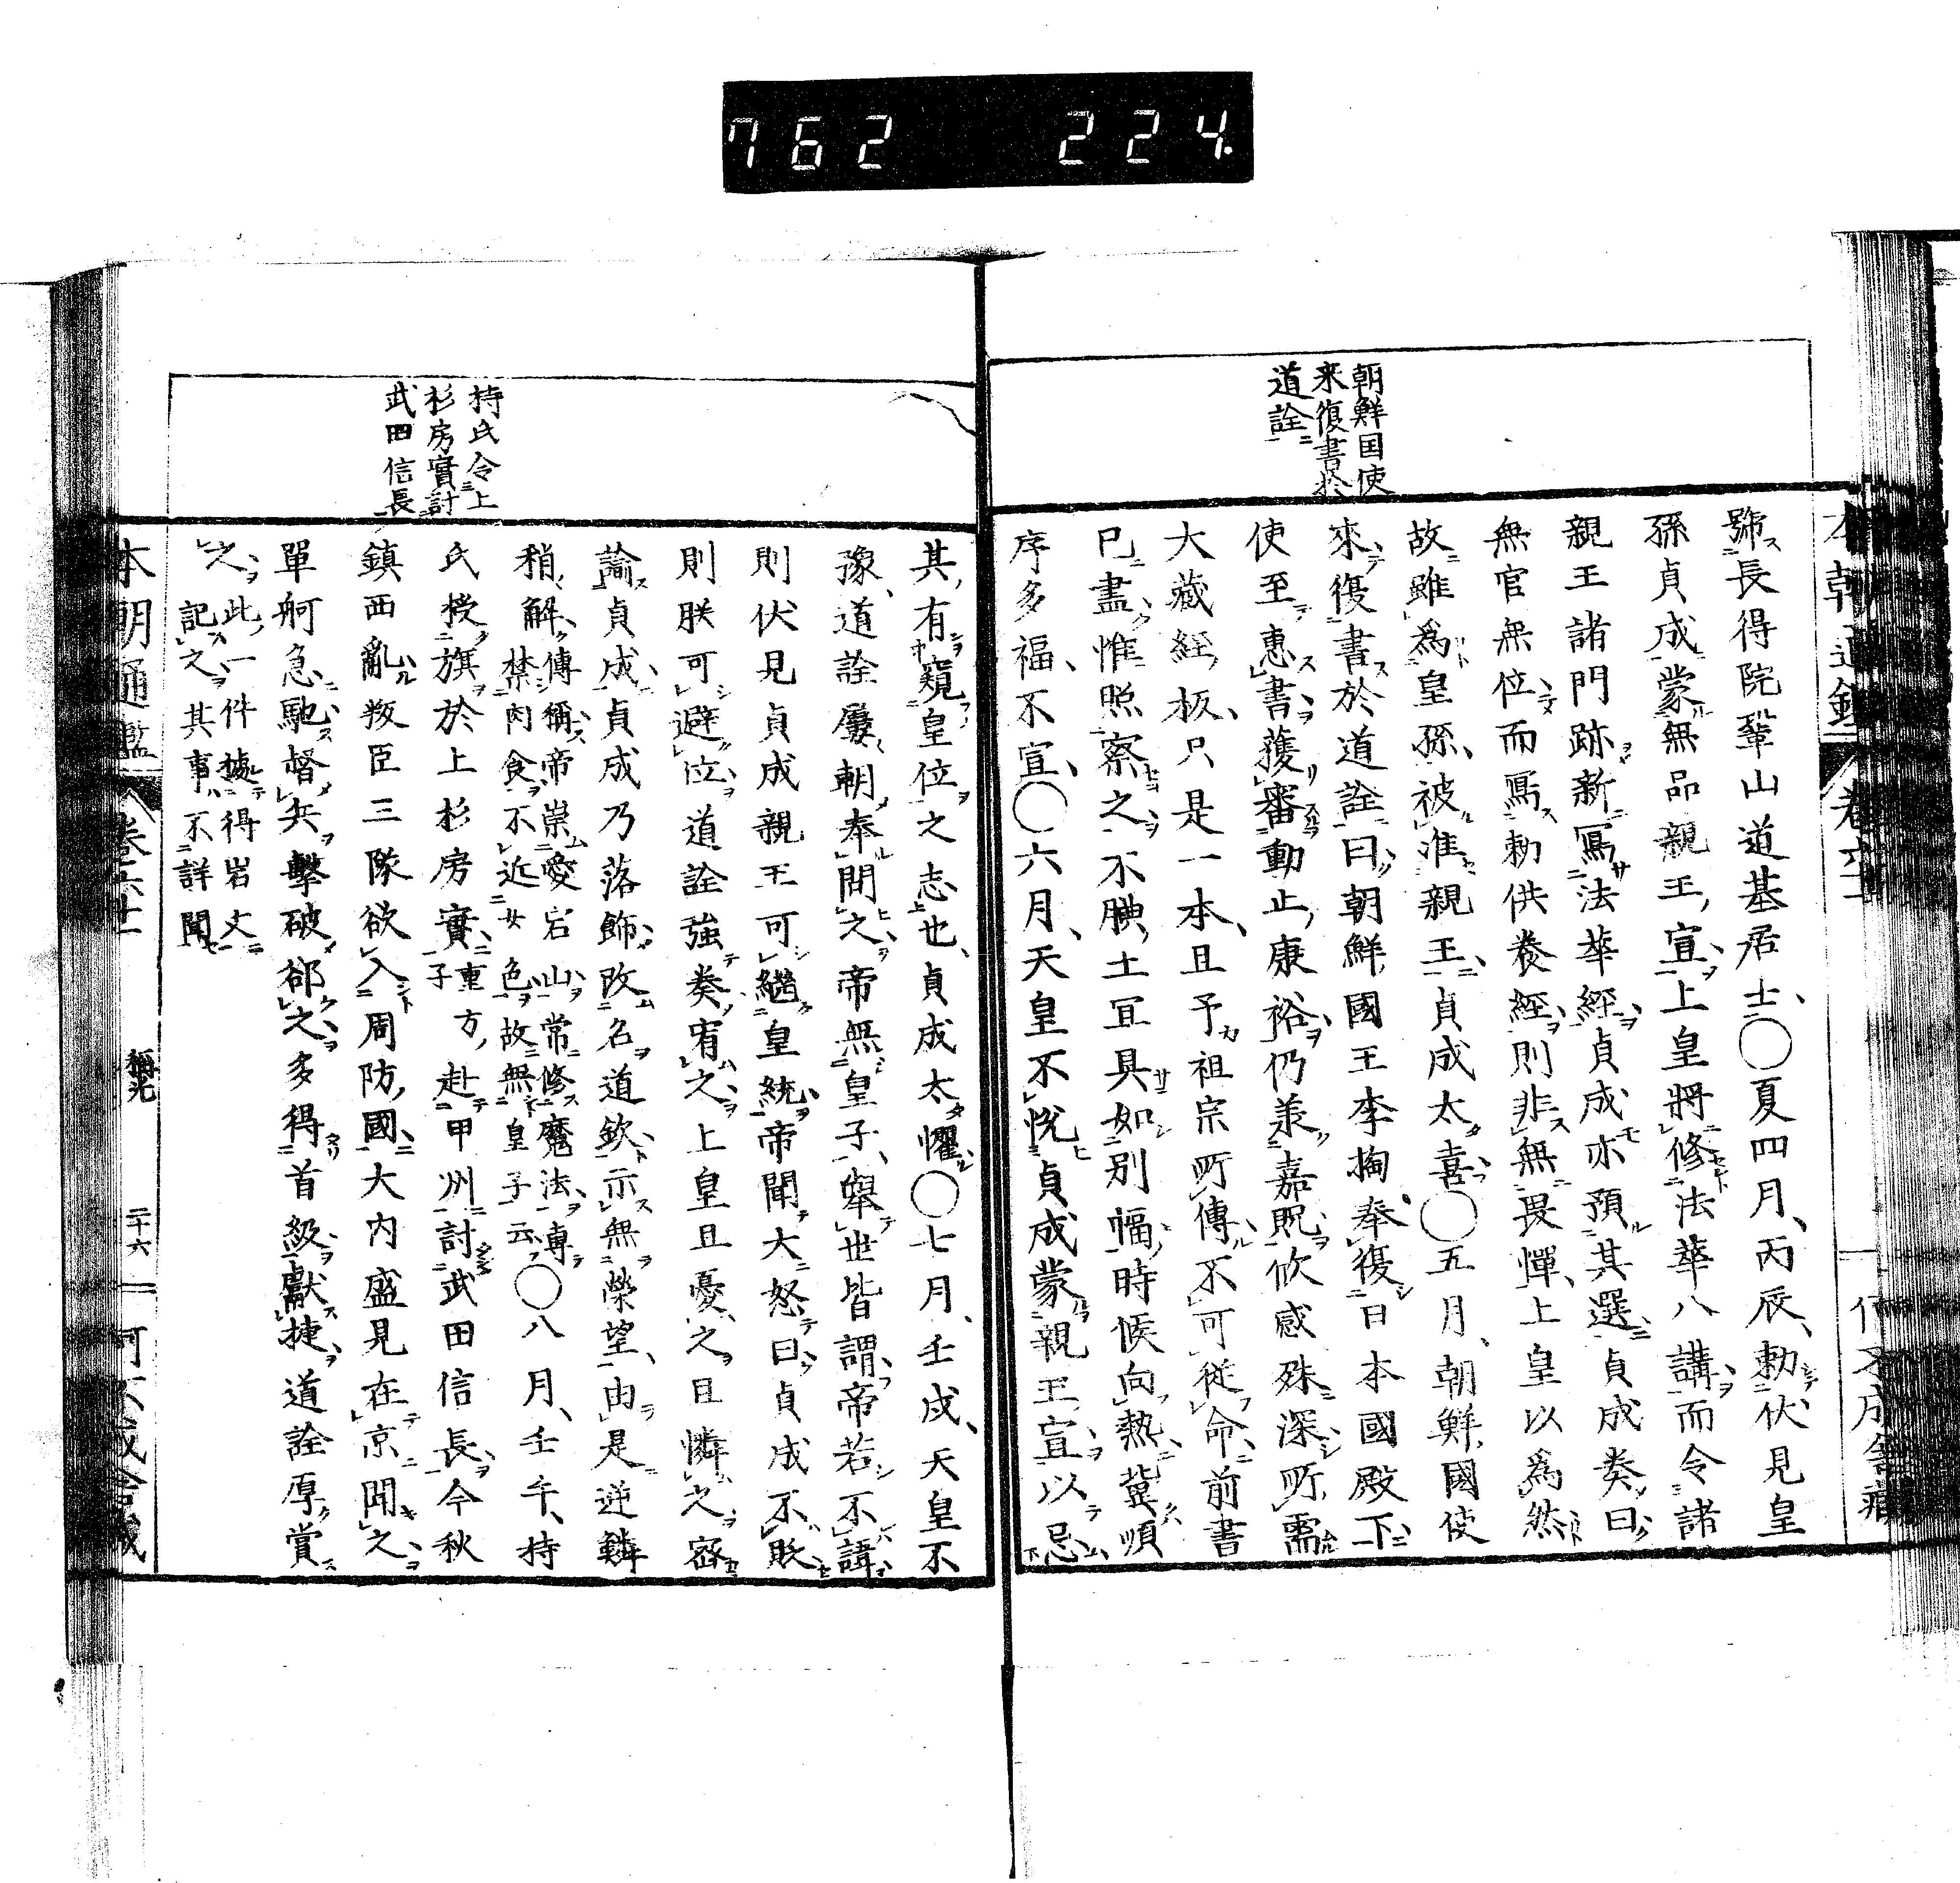 762 224.
朝鮮国使
来復書於
道詮
號長得院鞏山道基居士○夏四月丙辰勅伏見皇
孫貞成蒙無品親王宣上皇將修法華八講而令諸
親王諸門跡新寫法華經貞成亦預其選貞成奏曰
無官無位而寫勅供養經則非無畏憚上皇以爲然
故雖爲皇孫被准親王貞成太喜○五月朝鮮國使
來復書於道詮曰朝鮮國王李裪奉復日本國殿下
使至惠書獲審動止康裕仍羕嘉貺欣感殊深所需
大藏經板只是一本且予祖宗所傳不可從命前書
已盡惟照察之不腆土宜具如別幅時候向熱冀順
序多福不宣○六月天皇不悅貞成蒙親王宣以忌
持氏令上
杉房實討
武田信長
其有窺皇位之志也貞成太懼○七月壬戌天皇不
豫道詮屢朝奉問之帝無皇子舉世皆謂帝若不諱
則伏見貞成親王可繼皇統帝聞大怒曰貞成不貶
則朕可避位道詮強奏宥之上皇且憂之且憐之密
諭貞成貞成乃落飾改名道欽示無榮望由是逆鱗
稍解傳稱帝崇愛宕山常修魔法專
禁肉食不近女色故無皇子云○八月壬午持
氏授旗於上杉房實重方
子赴甲州討武田信長今秋
鎮西亂叛臣三隊欲入周防國大內盛見在京聞之
單舸急馳督兵擊破郤之多得首級獻捷道詮厚賞
之此一件據得岩丈
記之其事不詳聞
本朝通鑑 卷六十 稱光 二十六